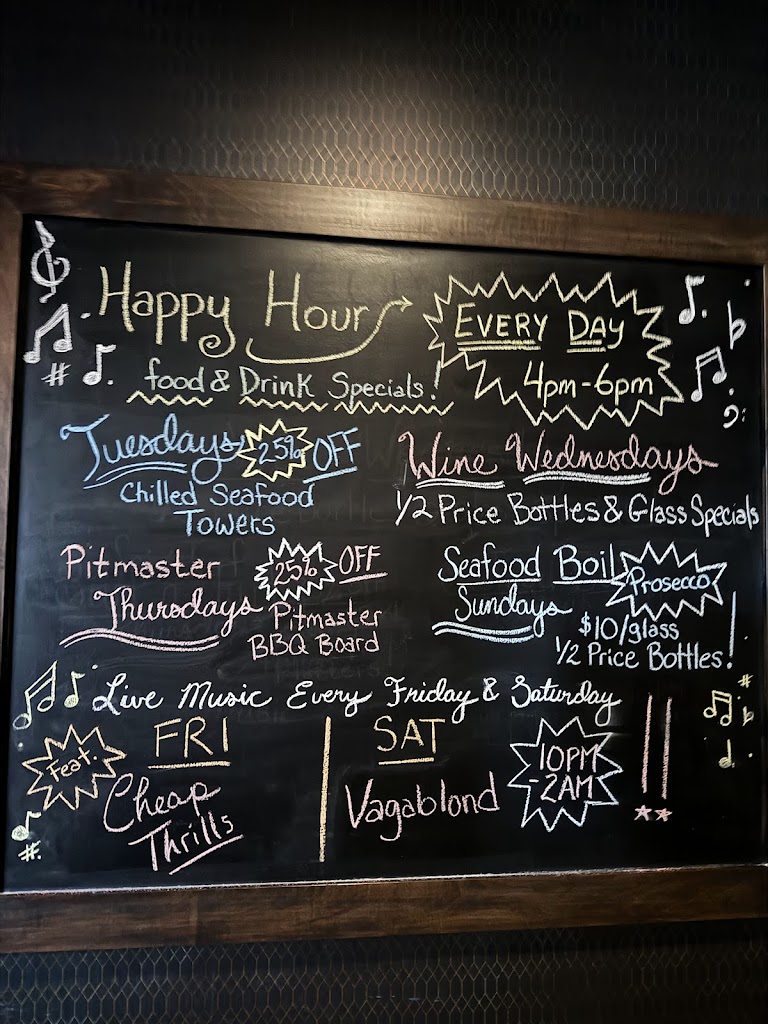 Happy Hour
EVERY DAY
4pm-6pm
food & Drink Specials!
Tuesdays 25% OFF
Chilled Seafood
Towers
Wine Wednesdays
1/2 Price Bottles & Glass Specials
Pitmaster 25% OFF
Thursdays
Pitmaster
BBQ Board
Seafood Boil
Sundays
Prosecco
$10/glass
1/2 Price Bottles!
Live Music Every Friday & Saturday
Feat.
FRI
Cheap
Thrills
SAT
Vagablond
10PM
-2AM
!!